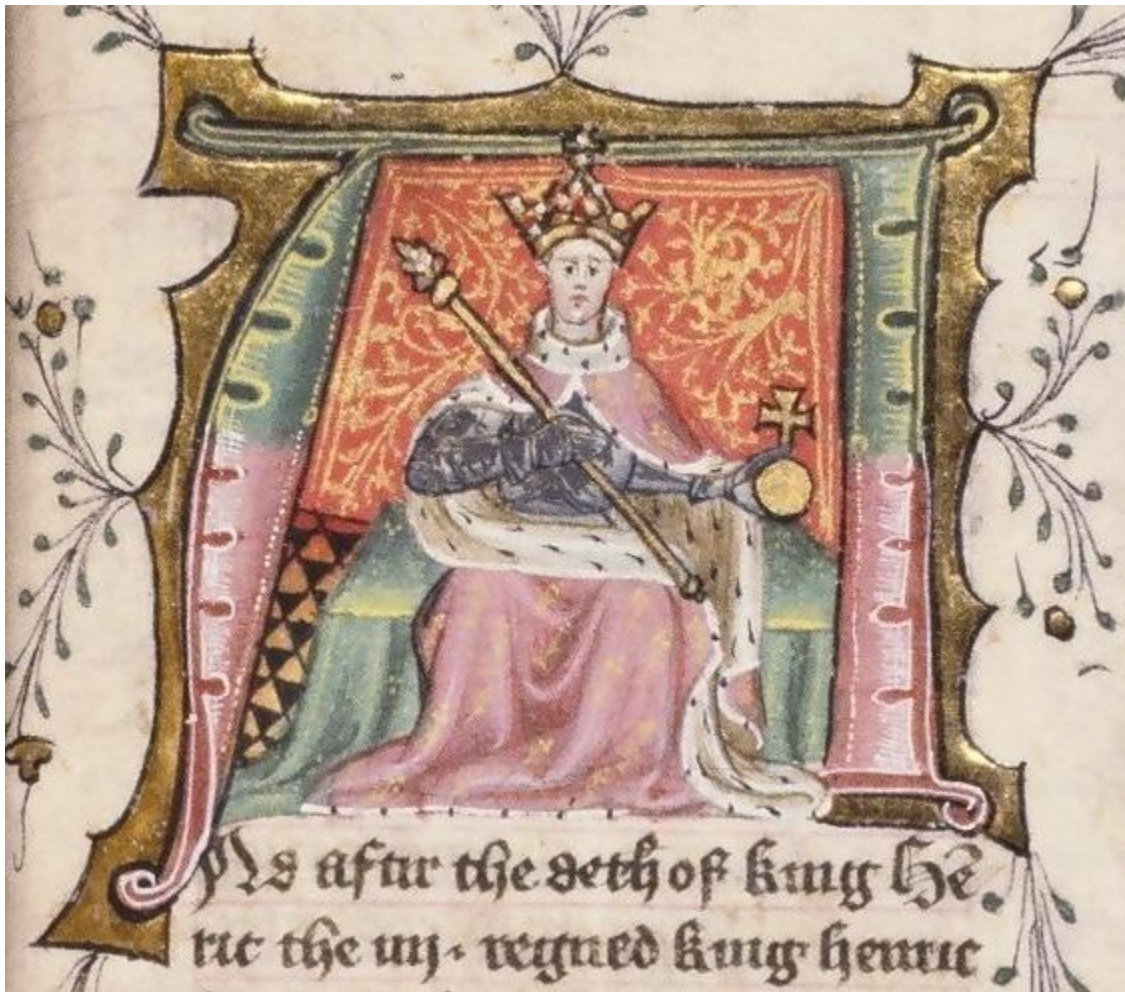 And aftir the deth of king Hē
ric the iiij. regned king henric